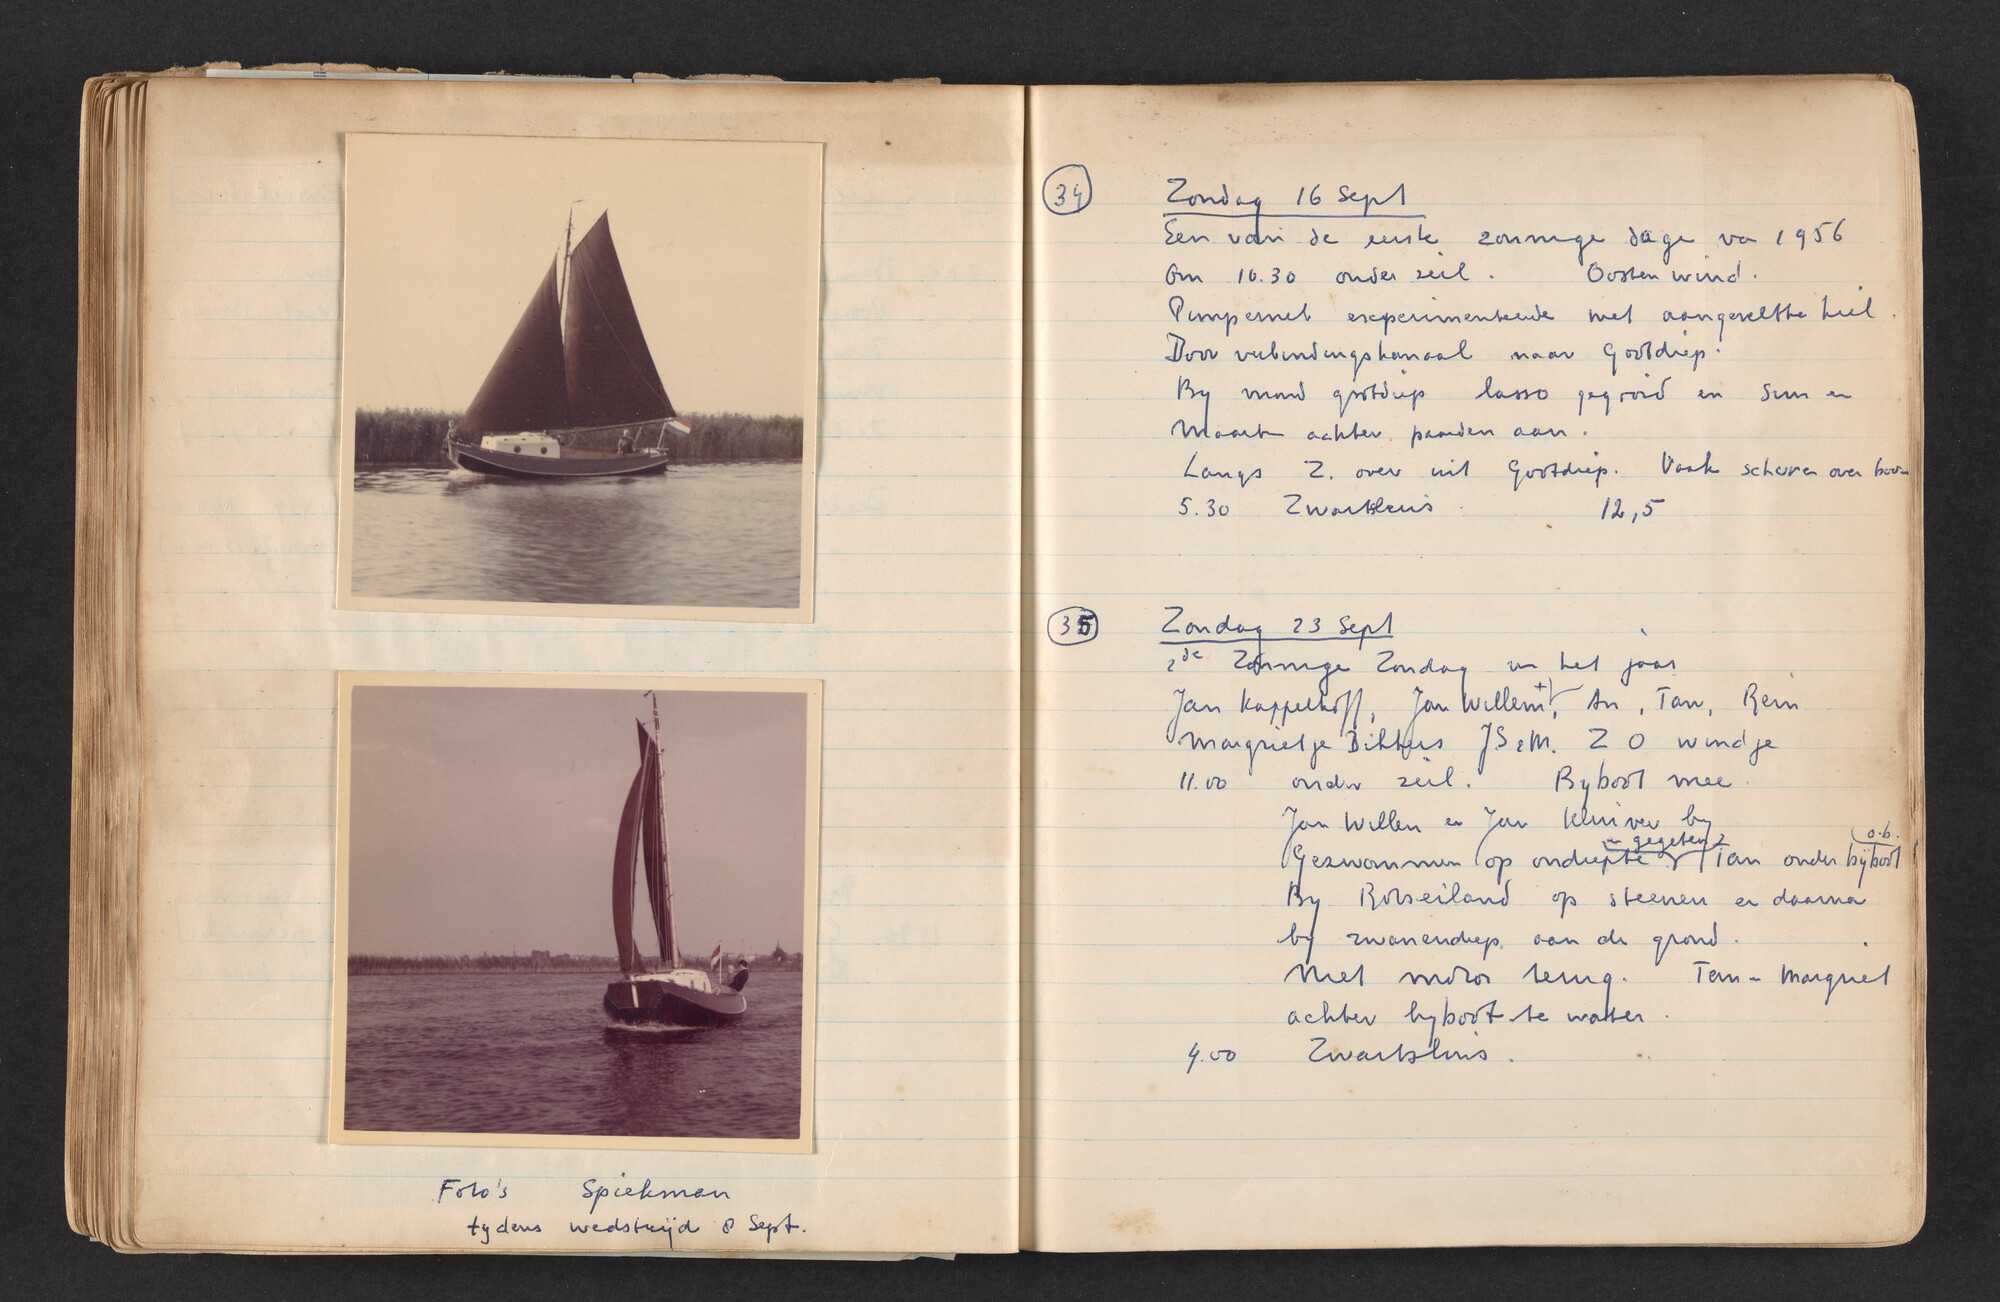 Foto's Spiekman
tydens wedstrijd 8 Sept.
34
Zondag 16 Sept
Een van de eerste zonnige dage va 1956
Om 10.30 onder zeil. Oosten wind.
Pimpernel experimenteerde met aangezette kiel.
Door verbindingskanaal naar Grootdiep.
By mond grootdiep lasso gegooid en Sun en
Maart achter paarden aan.
Langs Z. oever uit Grootdiep. Vaak scheren over boven
5.30 Zwartsluis 12,5
35
Zondag 23 Sept
2de Zonnige Zondag in het jaar
Jan Kappelhoff, Jan Willem +, An, Tan, Rein
Margrietje Dikkers JS & M. Z O windje
11.00 onder zeil. Byboot mee
Jan Willem en Jan kluiver by
en gegeten
o.b.
Gezwommen op ondiepte Tan onder bijboot
By Rotseiland op steenen en daarna
by zwanendiep aan de grond.
Met motor terug. Tan - Margriet
achter byboot te water.
4.00 Zwartsluis.